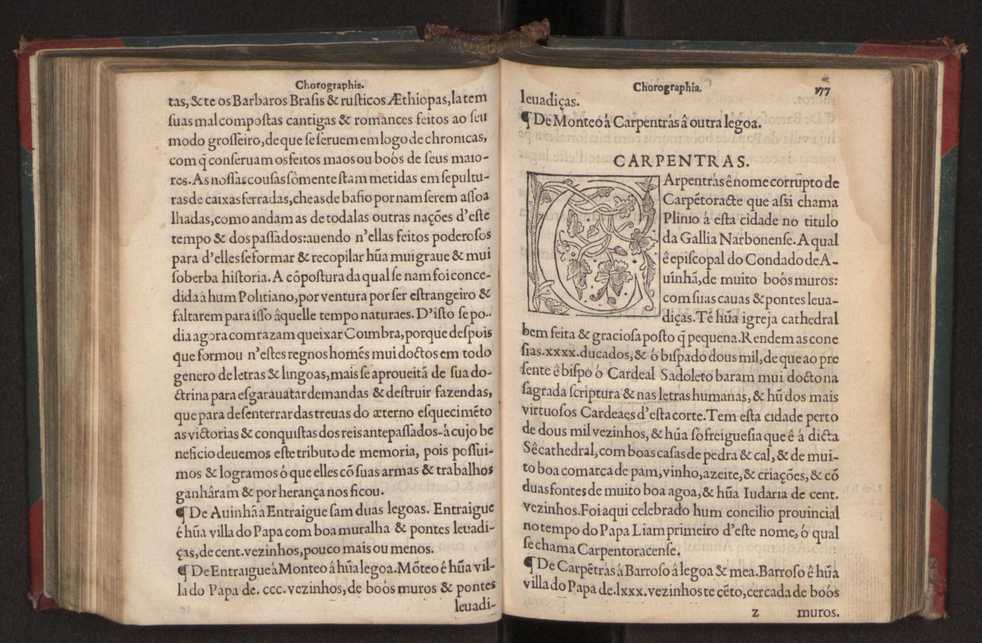 Chorographia.
tas, & te os Barbaros Brasis & rusticos Æthiopas, la tem
suas mal compostas cantigas & romances feitos ao seu
modo grosseiro, de que se seruem em logo de chronicas,
com q̃ conseruam os feitos maos ou boõs de seus maio-
res. As nossas cousas sòmente stam metidas em sepultu-
ras de caixas ferradas, cheas de bafio por nam serem assoa
lhadas, como andam as de todalas outras nações d'este
tempo & dos passados: auendo n'ellas feitos poderosos
para d'elles se formar & recopilar hũa mui graue & mui
soberba historia. A cõpostura da qual se nam foi conce-
dida à hum Politiano, por ventura por ser estrangeiro &
faltarem para isso âquelle tempo naturaes. D'isto se po-
dia agora com razam queixar Coimbra, porque despois
que formou n'estes regnos homẽs mui doctos em todo
genero de letras & lingoas, mais se aproueitã de sua do-
ctrina para esgarauatar demandas & destruir fazendas,
que para desenterrar das treuas do æterno esquecimẽto
as victorias & conquistas dos reis antepassados à cujo be
neficio deuemos este tributo de memoria, pois possui-
mos & logramos ó que elles cõ suas armas & trabalhos
ganhâram & por herança nos ficou.
¶ De Auinhã à Entraigue sam duas legoas. Entraigue
é hũa villa do Papa com boa muralha & pontes leuadi-
ças, de cent. vezinhos, pouco mais ou menos.
¶ De Entraigue à Monteo á hũa legoa. Mõteo é hũa vil-
la do Papa de. ccc. vezinhos, de boõs muros & pontes
leuadi-
Chorographia. 177
leuadiças.
¶ De Monteó à Carpentràs â outra legoa.
CARPENTRAS.
CArpentràs ê nome corrupto de
Carpẽtoracte que assi chama
Plinio á esta cidade no titulo
da Gallia Narbonense. A qual
ê episcopal do Condado de A-
uinhã, de muito boõs muros:
com suas cauas & pontes leua-
diças. Tẽ hũa igreja cathedral
bem feita & graciosa posto q̃ pequena. Rendem as cone
sias. xxxx. ducados, & ó bispado dous mil, de que ao pre
sente ê bispo ò Cardeal Sadoleto baram mui docto na
sagrada scriptura & nas letras humanas, & hũ dos mais
virtuosos Cardeaes d'esta corte. Tem esta cidade perto
de dous mil vezinhos, & hũa sò freiguesia que ê á dicta
Sê cathedral, com boas casas de pedra & cal, & de mui-
to boa comarca de pam, vinho, azeite, & criações, & cõ
duas fontes de muito boa agoa, & hũa Iudaria de cent.
vezinhos. Foi aqui celebrado hum concilio prouincial
no tempo do Papa Liam primeiro d'este nome, ó qual
se chama Carpentoracense.
¶ De Carpẽtràs à Barroso â legoa & mea. Barroso é hũa
villa do Papa de. lxxx. vezinhos te cẽto, cercada de boós
z muros.